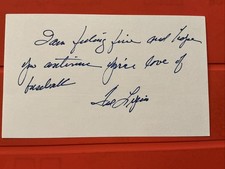 I am feeling fine and hope
you continue your love of
baseball